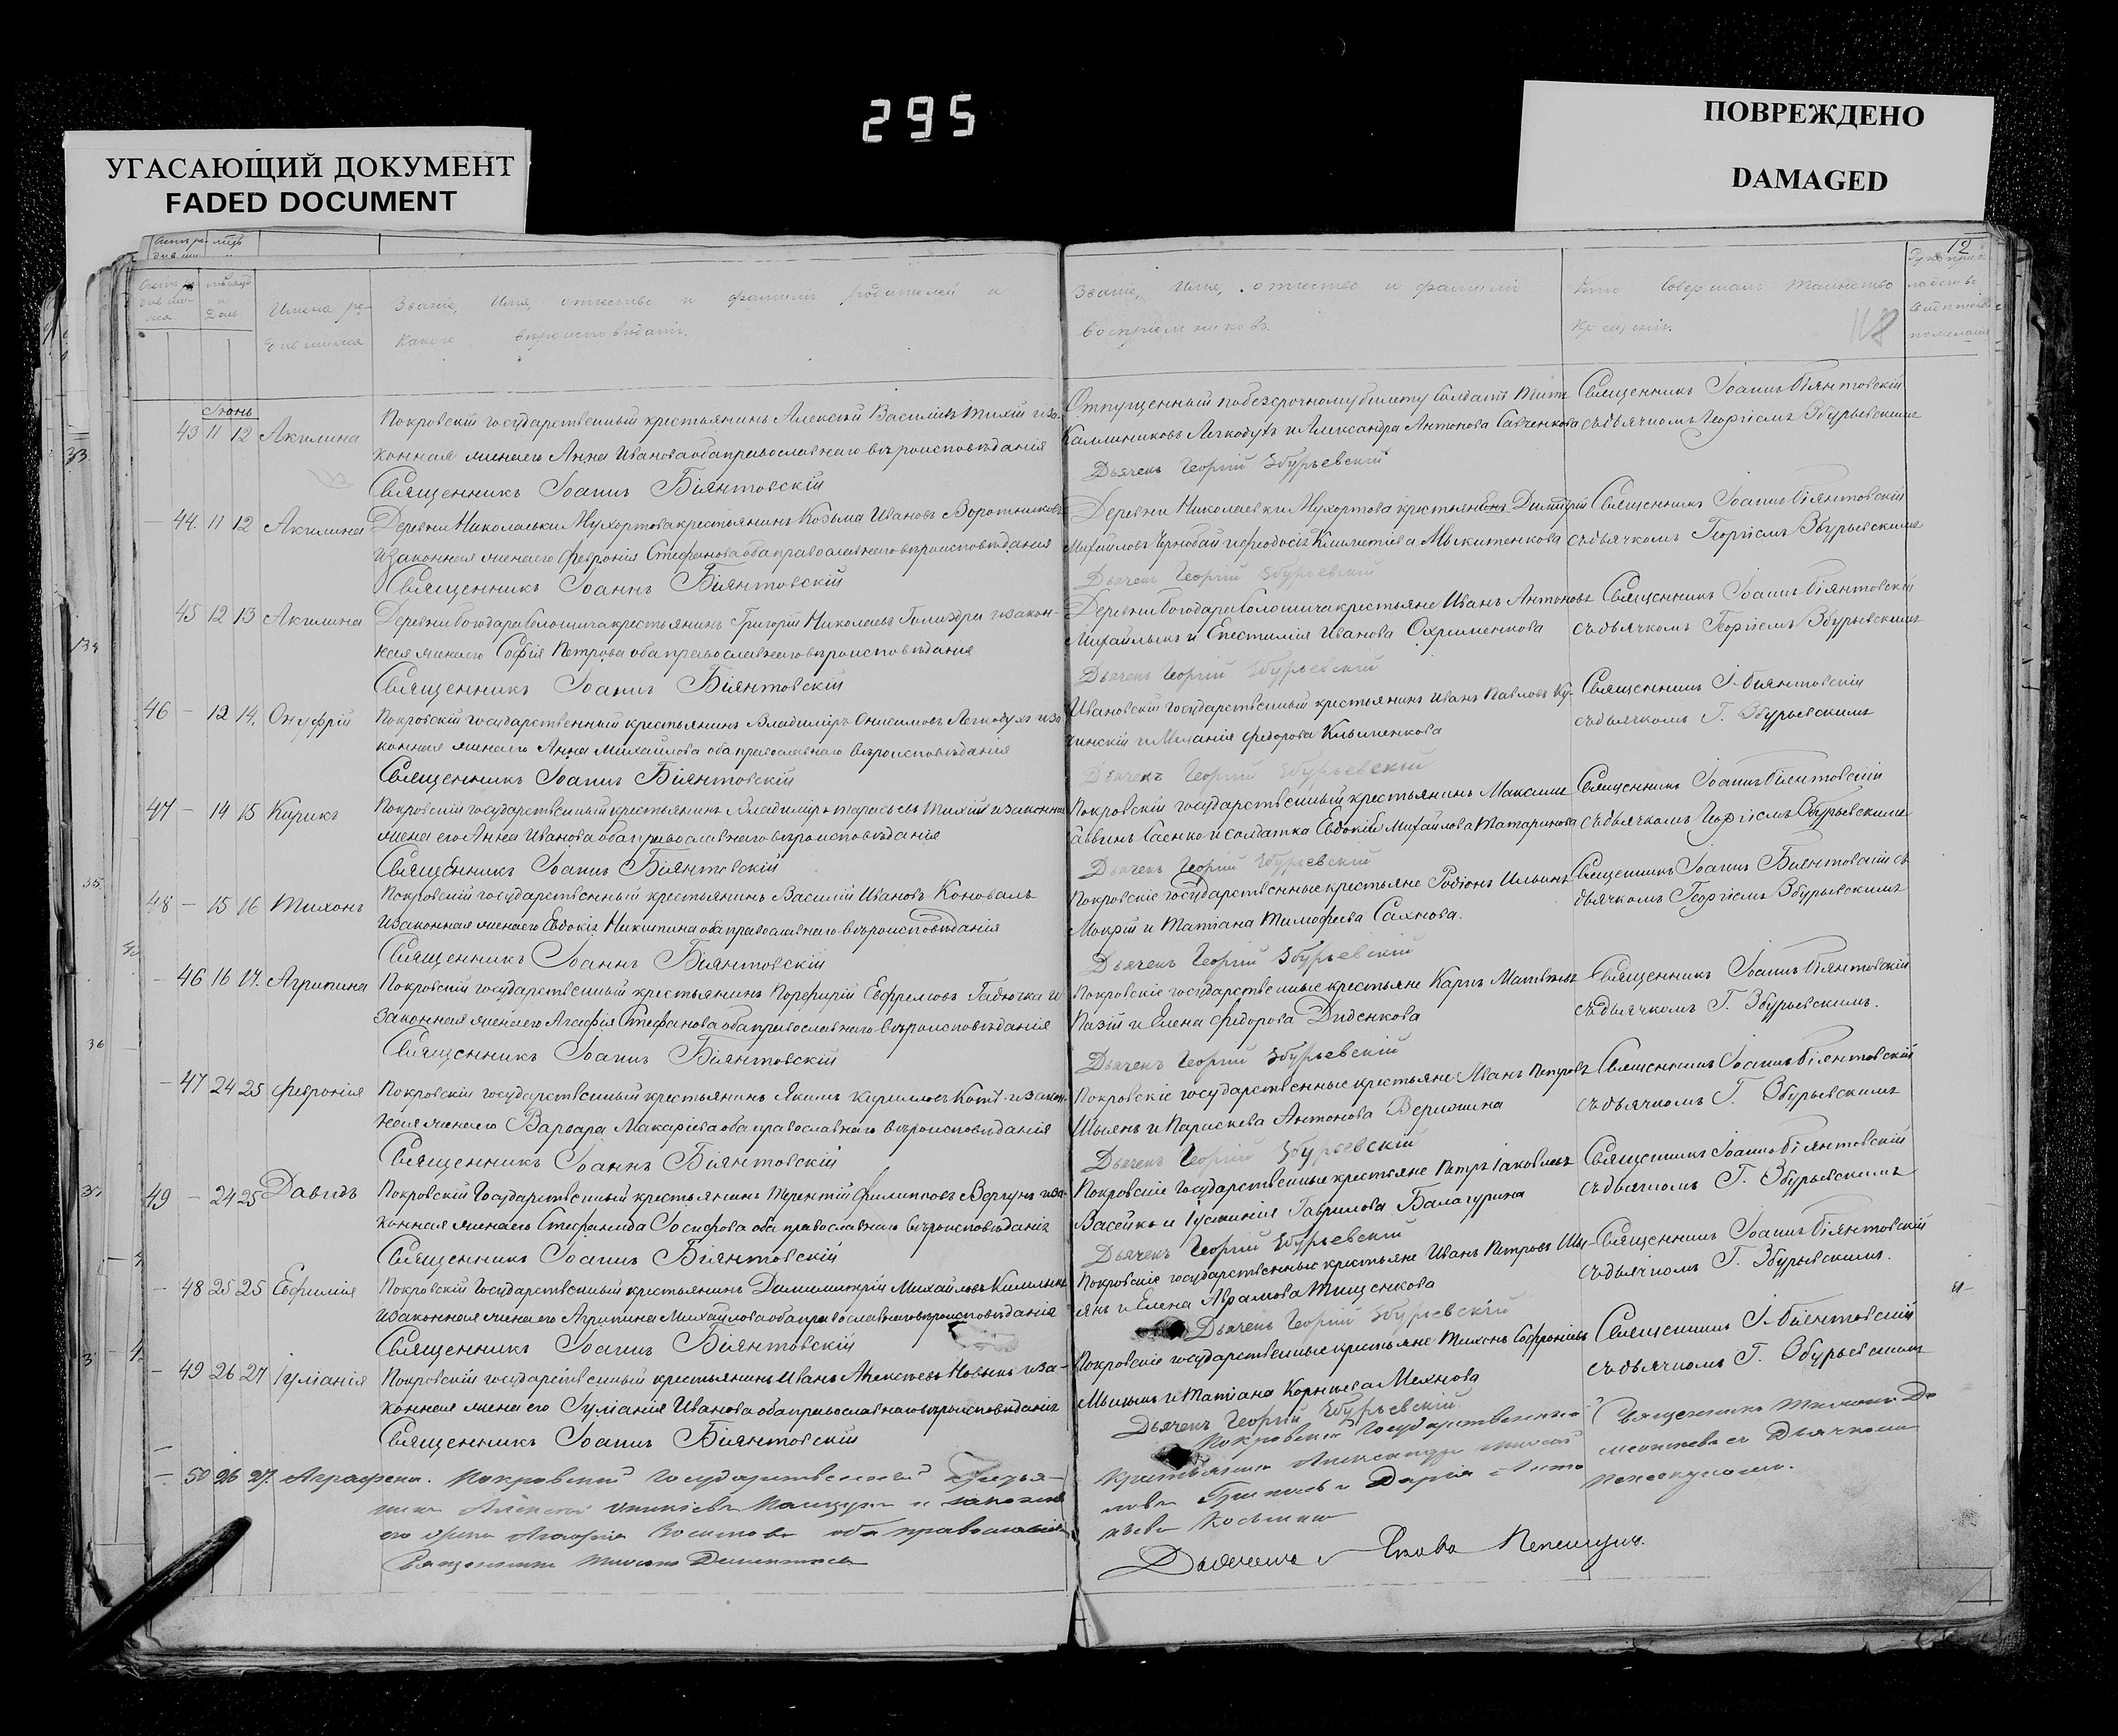 295
УГАСАЮЩИЙ ДОКУМЕНТ
FADED DOCUMENT
ПОВРЕЖДЕНО
DAMAGED
12
Имена ро-
дившихся
Званіе, Имя, отчество и фамилія родителей и
какого вѣроисповѣданія.
Званіе, Имя, отчество и фамилія
воспріемниковъ.
Кто совершалъ таинство
крещенія.
118
Іюнь
43 11 12 Акилина
Покровскій государственный крестьянинъ Алексѣй Василіевъ Тихій и за-
конная жена его Анна Иванова оба православнаго вѣроисповѣданія
Священникъ Іоаннъ Біянтовскій
Отпущенный по безсрочному билету солдатъ
Каллиниковъ Легкодухъ и Александра Антонова Савченкова
Дьячекъ Георгій Збурьевскій
Священникъ Іоаннъ Біянтовскій
съ дьячкомъ Георгіемъ Збурьевскимъ
44 11 12 Акилина
Деревни Николаевки Мухортова крестьянинъ Козьма Ивановъ Воротниковъ
и законная жена его Февронія Стефанова оба православнаго вѣроисповѣданія
Священникъ Іоаннъ Біянтовскій
Деревни Николаевки Мухортова крестьянинъ Димитрій
Михайловъ Чернобай и Феодосія Климентіева Мыкитенкова
Дьячекъ Георгій Збурьевскій
Священникъ Іоаннъ Біянтовскій
съ дьячкомъ Георгіемъ Збурьевскимъ
45 12 13 Акилина
крестьянинъ Григорій Николаевъ и закон-
ная жена его Софія Петрова оба православнаго вѣроисповѣданія
Священникъ Іоаннъ Біянтовскій
крестьяне Иванъ Антоновъ
Михайлыкъ и Епистимія Иванова Охрименкова
Дьячекъ Георгій Збурьевскій
Священникъ Іоаннъ Біянтовскій
съ дьячкомъ Георгіемъ Збурьевскимъ
46 — 12 14. Онуфрій
Покровскій государственный крестьянинъ Владиміръ Онисимовъ Легкодухъ и за-
конная жена его Анна Михайлова оба православнаго вѣроисповѣданія
Священникъ Іоаннъ Біянтовскій
Ивановскій государственный крестьянинъ Иванъ Павловъ Ку-
чинскій и Меланія Федорова Клыменкова
Дьячекъ Георгій Збурьевскій
Священникъ І. Біянтовскій
съ дьячкомъ Г. Збурьевскимъ
47 — 14 15 Кирикъ
Покровскій государственный крестьянинъ Владиміръ Тарасьевъ Тихій и законная
жена его Анна Иванова оба православнаго вѣроисповѣданія
Священникъ Іоаннъ Біянтовскій
Покровскій государственный крестьянинъ Максимъ
Саввинъ Саенко и солдатка Евдокія Михайлова Татаринова
Дьячекъ Георгій Збурьевскій
Священникъ Іоаннъ Біянтовскій
съ дьячкомъ Георгіемъ Збурьевскимъ
48 — 15 16 Тихонъ
Покровскій государственный крестьянинъ Василій Ивановъ Коновалъ
и законная жена его Евдокія Никитина оба православнаго вѣроисповѣданія
Священникъ Іоаннъ Біянтовскій
Покровскіе государственные крестьяне Родіонъ Ильинъ
Мокрій и Татіана Тимофеева Сахнова.
Дьячекъ Георгій Збурьевскій
Священникъ Іоаннъ Біянтовскій съ
дьячкомъ Георгіемъ Збурьевскимъ
— 46 16 17. Агрипина
Покровскій государственный крестьянинъ Порфирій Евфремовъ Гадючка и
законная жена его Агафія Стефанова оба православнаго вѣроисповѣданія
Священникъ Іоаннъ Біянтовскій
Покровскіе государственные крестьяне Карпъ Матвѣевъ
Пазій и Елена Федорова Диденкова
Дьячекъ Георгій Збурьевскій
Священникъ Іоаннъ Біянтовскій
съ дьячкомъ Г. Збурьевскимъ.
— 47 24 25 Февронія
Покровскій государственный крестьянинъ Якимъ Кирилловъ Котъ и закон-
ная жена его Варвара Макаріева оба православнаго вѣроисповѣданія
Священникъ Іоаннъ Біянтовскій
Покровскіе государственные крестьяне Иванъ Петровъ
Шыянъ и Параскева Антонова
Дьячекъ Георгій Збурьевскій
Священникъ Іоаннъ Біянтовскій
съ дьячкомъ Г. Збурьевскимъ
49 — 24 25 Давидъ
Покровскій Государственный крестьянинъ Терентій Филипповъ Вергунъ и за-
конная жена его Стефанида Іосифова оба православнаго вѣроисповѣданія
Священникъ Іоаннъ Біянтовскій
Покровскіе государственные крестьяне Петръ Іаковлевъ
Васейко и Іустинія Гаврилова Балагурина
Дьячекъ Георгій Збурьевскій
Священникъ Іоаннъ Біянтовскій
съ дьячкомъ Г. Збурьевскимъ
— 48 25 25 Евфимія
Покровскій Государственный крестьянинъ Димитрій Михайловъ
и законная жена его Агрипина Михайлова оба православнаго вѣроисповѣданія
Священникъ Іоаннъ Біянтовскій
Покровскіе государственные крестьяне Иванъ Петровъ Шы-
янъ и Елена Аврамова Тищенкова
Дьячекъ Георгій Збурьевскій
Священникъ Іоаннъ Біянтовскій
съ дьячкомъ Г. Збурьевскимъ.
— 49 26 27 Іуліанія
Покровскій государственный крестьянинъ Иванъ Алексѣевъ Новыкъ и за-
конная жена его Іуліанія Иванова оба православнаго вѣроисповѣданія
Священникъ Іоаннъ Біянтовскій
Покровскіе государственные крестьяне Тихонъ Софроніевъ
и Татіана Корніева Махнова
Дьячекъ Георгій Збурьевскій
Священникъ І. Біянтовскій
съ дьячкомъ Г. Збурьевскимъ
— 50 26 27. Аграфена.
Покровскій государственный крестья-
нинъ Алексѣй и законная
его жена Агафія оба православнаго
Священникъ
Покровскій Государственный
крестьянинъ Александръ
и Дарія
Дьячекъ
Священникъ
дьячкомъ